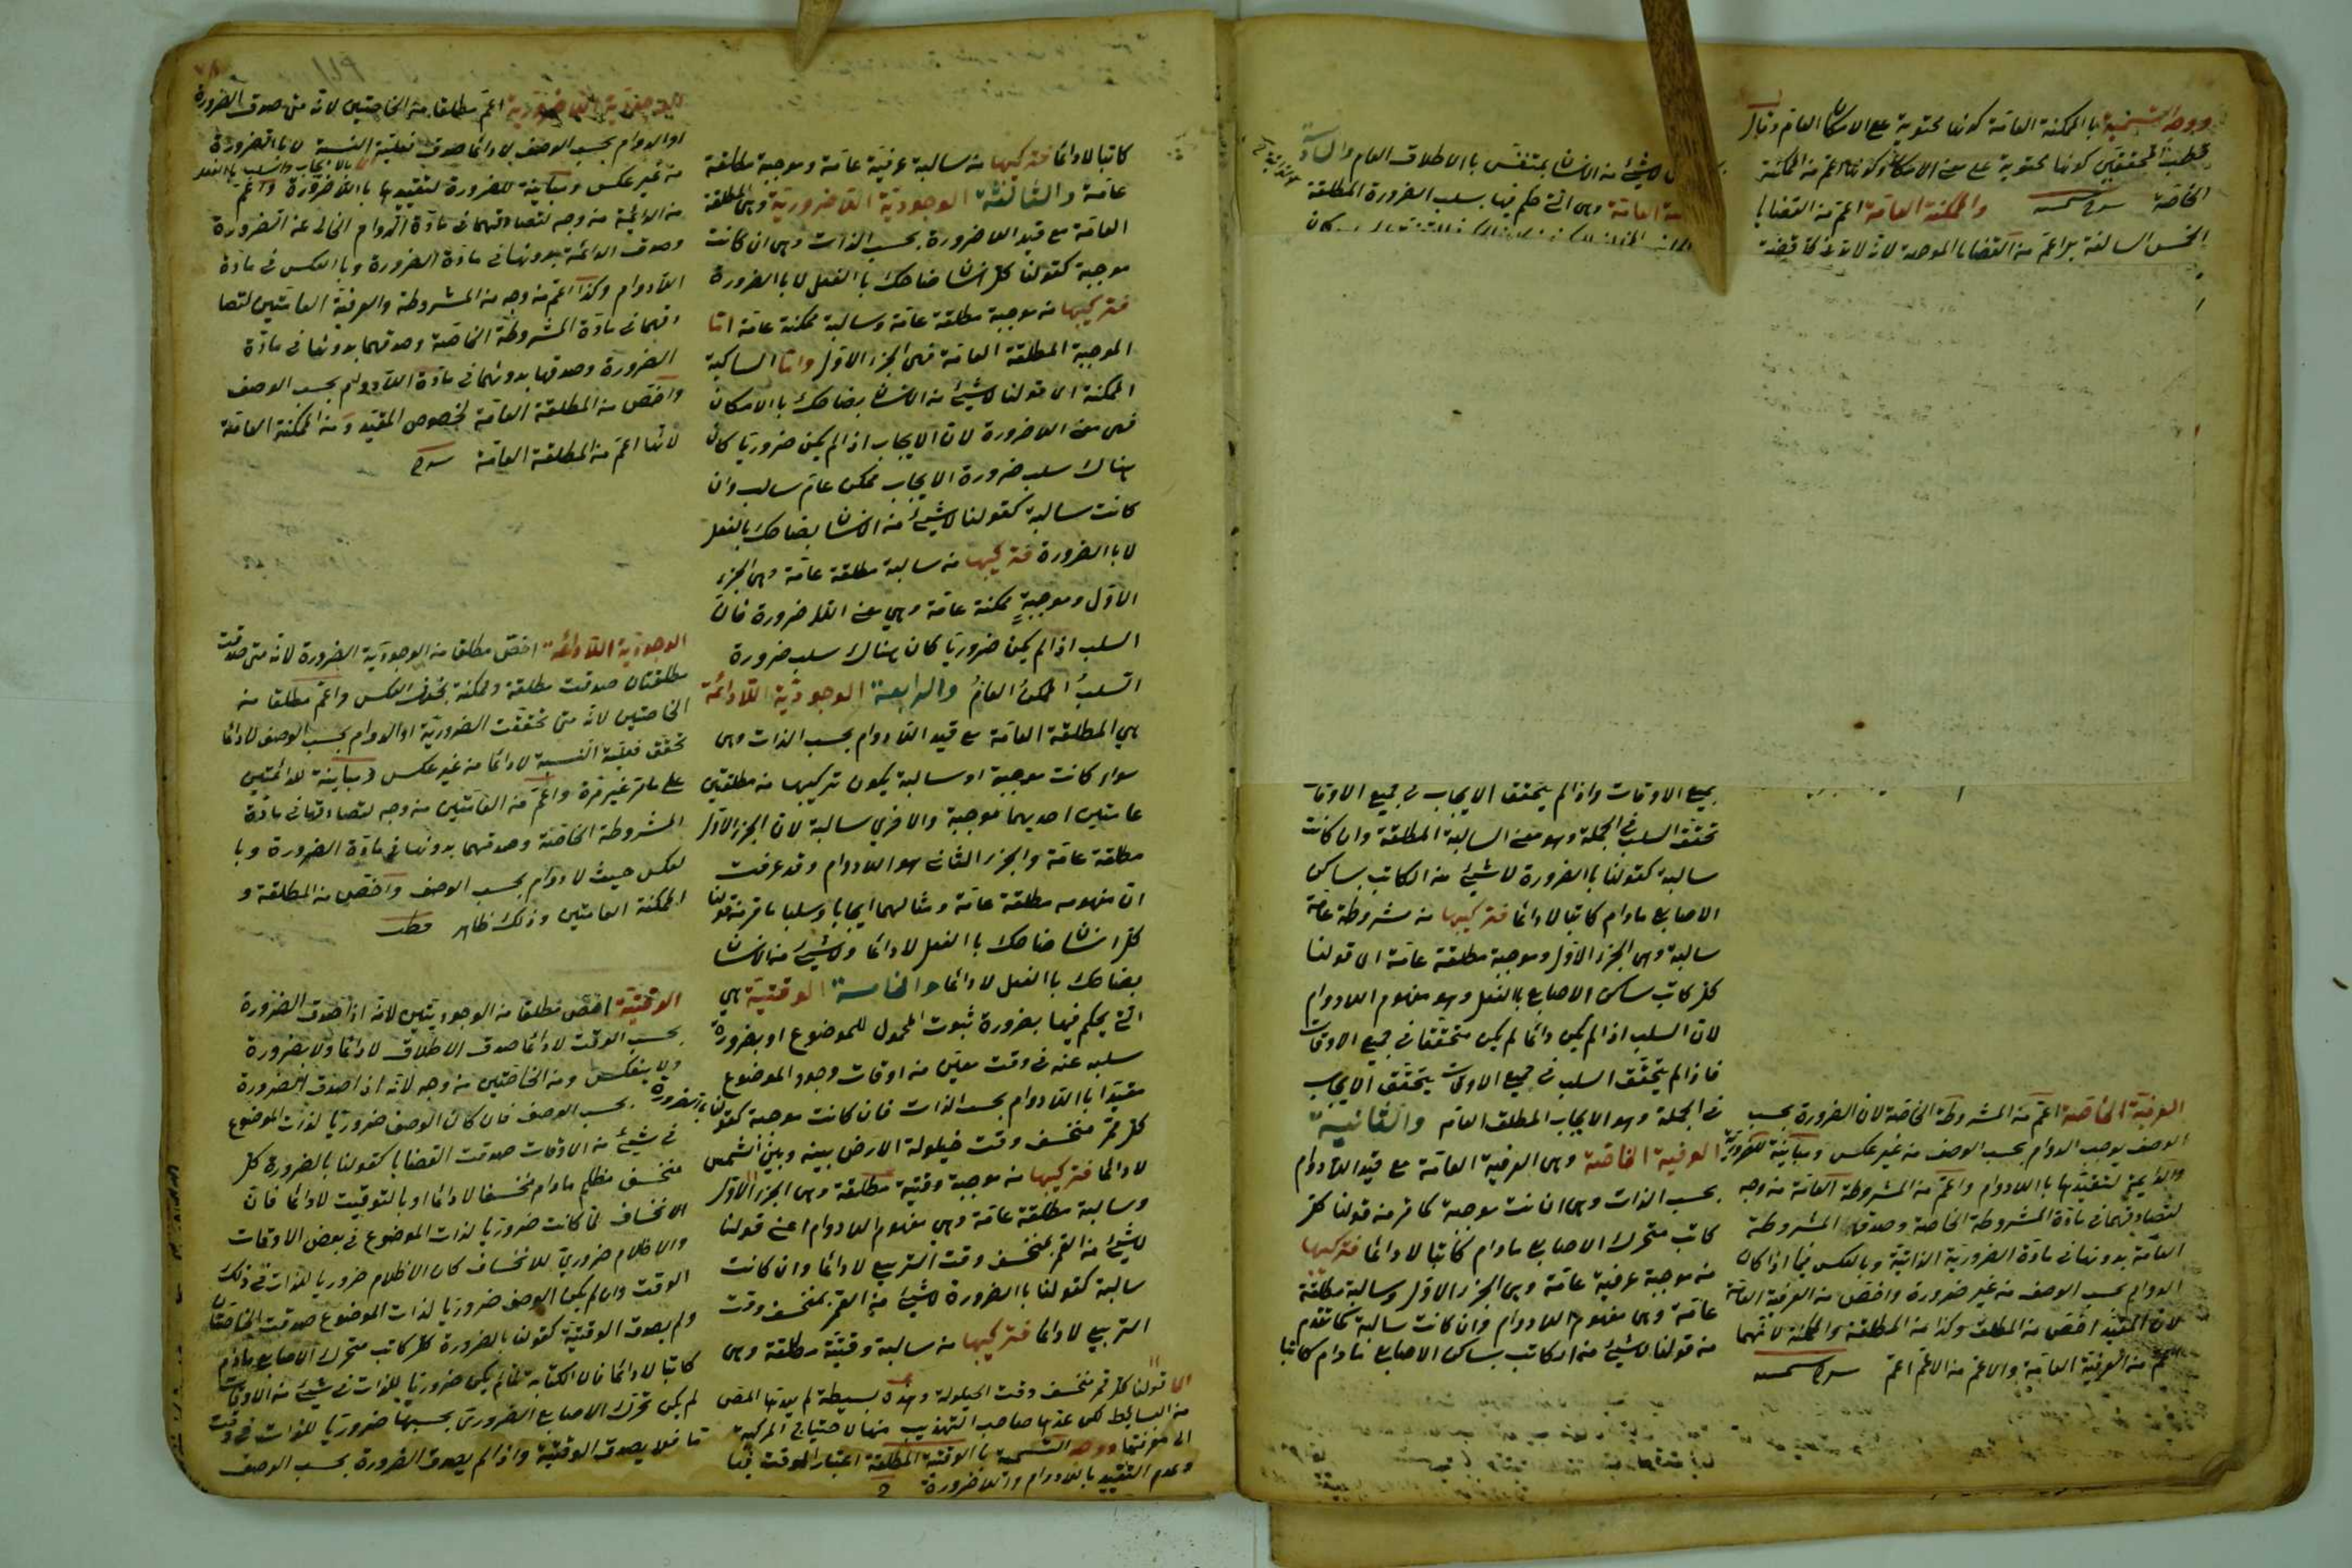 ووجه التسمية بالممكنة العامة كونها محتوية على الامكان العام وقال
قطب المحققين كونها محتوية على معنى الامكان وكونها اعم من الممكنة
الخاصة والممكنة العامة اعم من القضايا
الخمس السالفة بل اعم من القضايا الموجهة لانه
لاشيء من الانسان بمتنفس باالاطلاق العام والسادسة
العامة وهى التى حكم فيها بسلب الضرورة المطلقة
جميع الاوقات واذا لم يتحقق الايجاب فى جميع الاوقات
تحقق السلب فى الجملة وهو معنى السالبة المطلقة وان كانت
سالبة كقولنا باالضرورة لاشيئ من الكاتب بساكن
الاصابع مادام كاتبا لادائما فتركيبها من مشروطة عامة
سالبة وهى الجزء الاول وموجبة مطلقة عامة اى قولنا
كل كاتب ساكن الاصابع باالفعل وهو مفهوم اللادوام
لان السلب اذا لم يكن دائما لم يكن متحققا فى جميع الاوقات
فاذا لم يتحقق السلب فى جميع الاوقات يتحقق الايجاب
فى الجملة وهو الايجاب المطلق العام والثانية
العرفية الخاصة وهى العرفية العامة مع قيد اللادوام
بحسب الذات وهى ان كانت موجبة كما مر من قولنا كل
كاتب متحرك الاصابع مادام كاتبا لادائما فتركيبها
من موجبة عرفية عامة وهى الجزء الاول وسالبة مطلقة
عامة وهى مفهوم اللادوام وان كانت سالبة كما تقدم
من قولنا لاشيئ من الكاتب بساكن الاصابع مادام كاتبا
العرفية الخاصة اعم من المشروطة الخاصة لان الضرورة بحسب
الوصف يوجب الدوام بحسب الوصف من غير عكس ومباينة للضرورية
والدائمة لتقيدها باللادوام واعم من المشروطة العامة من وجه
لتصادقهما فى مادة المشروطة الخاصة وصدق المشروطة
العامة بدونها فى مادة الضرورية الذاتية وبالعكس فيما اذا كان
الدوام بحسب الوصف من غير ضرورة واخص من العرفية العامة
لان المقيد اخص من المطلق وكذا من المطلقة والممكنة لانهما
اعم من العرفية العامة والاعم من الاعم اعم
كاتبا لادائما فتركيبها من سالبة عرفية عامة وموجبة مطلقة
عامة والثالثة الوجودية اللاضرورية وهى المطلقة
العامة مع قيد اللاضرورة بحسب الذات وهى ان كانت
موجبة كقولنا كل انسان ضاحك باالفعل لا باالضرورة
فتركيبها من موجبة مطلقة عامة وسالبة ممكنة عامة اما
الموجبة المطلقة العامة فهى الجزء الاول واما السالبة
الممكنة اى قولنا لاشيئ من الانسان بضاحك باالامكان
فهى معنى اللاضرورة لان الايجاب اذا لم يكن ضروريا كان
هناك سلب ضرورة الايجاب ممكن عام سالب وان
كانت سالبة كقولنا لاشيئ من الانسان بضاحك بالفعل
لا باالضرورة فتركيبها من سالبة مطلقة عامة وهى الجزء
الاول وموجبة ممكنة عامة وهى معنى اللاضرورة فان
السلب اذا لم يكن ضروريا كان هناك سلب ضرورة
السلب الممكن العام والرابعة الوجودية اللادائمة
هى المطلقة العامة مع قيد اللادوام بحسب الذات وهى
سواء كانت موجبة او سالبة يكون تركيبها من مطلقتين
عامتين احديهما موجبة والاخرى سالبة لان الجزء الاول
مطلقة عامة والجزء الثانى هو اللادوام وقد عرفت
ان مفهومه مطلقة عامة ومثالهما ايجابا وسلبا ما مر من قولنا
كل انسان ضاحك باالفعل لادائما ولاشيئ من الانسان
بضاحك باالفعل لادائما والخامسة الوقتية هى
التى يحكم فيها بضرورة ثبوت المحمول للموضوع او بضرورة
سلبه عنه فى وقت معين من اوقات وجود الموضوع
مقيدا باللادوام بحسب الذات فان كانت موجبة كقولنا بالضرورة
كل قمر منخسف وقت حيلولة الارض بينه وبين الشمس
لادائما فتركيبها من موجبة وقتية مطلقة وهى الجزء الاول
وسالبة مطلقة عامة وهى مفهوم اللادوام اعنى قولنا
لاشيئ من القمر بمنخسف وقت التربيع لادائما وان كانت
سالبة كقولنا باالضرورة لاشيئ من القمر بمنخسف وقت
التربيع لادائما فتركيبها من سالبة وقتية مطلقة وهى
اى قولنا كل قمر منخسف وقت الحيلولة وهذه بسيطة لم يعدها المص
من البسائط لكن عدها صاحب التهذيب منها لاحتياج المركبة
الى معرفتها ووجه التسمية باالوقتية المطلقة اعتبار الوقت فيها
وعدم التقييد باللادوام واللاضرورة
الوجودية اللاضرورية اعم مطلقا من الخاصتين لانه متى صدق الضرورة
او الدوام بحسب الوصف لادائما صدق فعلية النسبة لا باالضرورة
من غير عكس ومباينة للضرورة لتقييدها باللاضرورة واعم
من الدائمة من وجه لتصادقهما فى مادة الدوام الخالى عن الضرورة
وصدق الدائمة بدونها فى مادة الضرورة وباالعكس فى مادة
اللادوام وكذا اعم من وجه من المشروطة والعرفية العامتين لتصا
دقهما فى مادة المشروطة الخاصة وصدقهما بدونها فى مادة
الضرورة وصدقها بدونهما فى مادة اللادوام بحسب الوصف
واخص من المطلقة العامة لخصوص المقيد ومن الممكنة العامة
لانها اعم من المطلقة العامة
الوجودية اللادائمة اخص مطلقا من الوجودية الضرورة لانه متى صدقت
مطلقتان صدقت مطلقة وممكنة بخلاف العكس واعم مطلقا من
الخاصتين لانه متى تحققت الضرورية او الدوام بحسب الوصف لادائما
تحقق فعلية النسبة لادائما من غير عكس ومباينة للدائمتين
على ما مر غير مرة واعم من العامتين من وجه لتصادقها فى مادة
المشروطة الخاصة وصدقهما بدونها فى مادة الضرورة وبا
لعكس حيث لادوام بحسب الوصف واخص من المطلقة و
الممكنة العامتين وذلك ظاهر
الوقتية اخص مطلقا من الوجوديتين لانه اذا صدق الضرورة
بحسب الوقت لادائما صدق الاطلاق لادائما ولا بضرورة
ولا ينعكس ومن الخاصتين من وجه لانه اذا صدق الضرورة
بحسب الوصف فان كان الوصف ضروريا لذات الموضوع
فى شيئ من الاوقات صدقت القضايا كقولنا بالضرورة كل
منخسف مظلم مادام منخسفا لادائما او بالتوقيت لادائما فان
الانخساف لما كانت ضروريا لذات الموضوع فى بعض الاوقات
والاظلام ضرورى للانخساف كان الاظلام ضروريا للذات فى ذلك
الوقت وان لم يكن الوصف ضروريا لذات الموضوع صدقت الخاصتان
ولم يصدق الوقتية كقولنا بالضرورة كل كاتب متحرك الاصابع مادام
كاتبا لادائما فان الكتابة لما لم يكن ضروريا للذات فى شيئ من الاوقات
لم يكن تحرك الاصابع الضرورى بحسبها ضروريا للذات فى وقت
ما فلا يصدق الوقتية واذا لم يصدق الضرورة بحسب الوصف